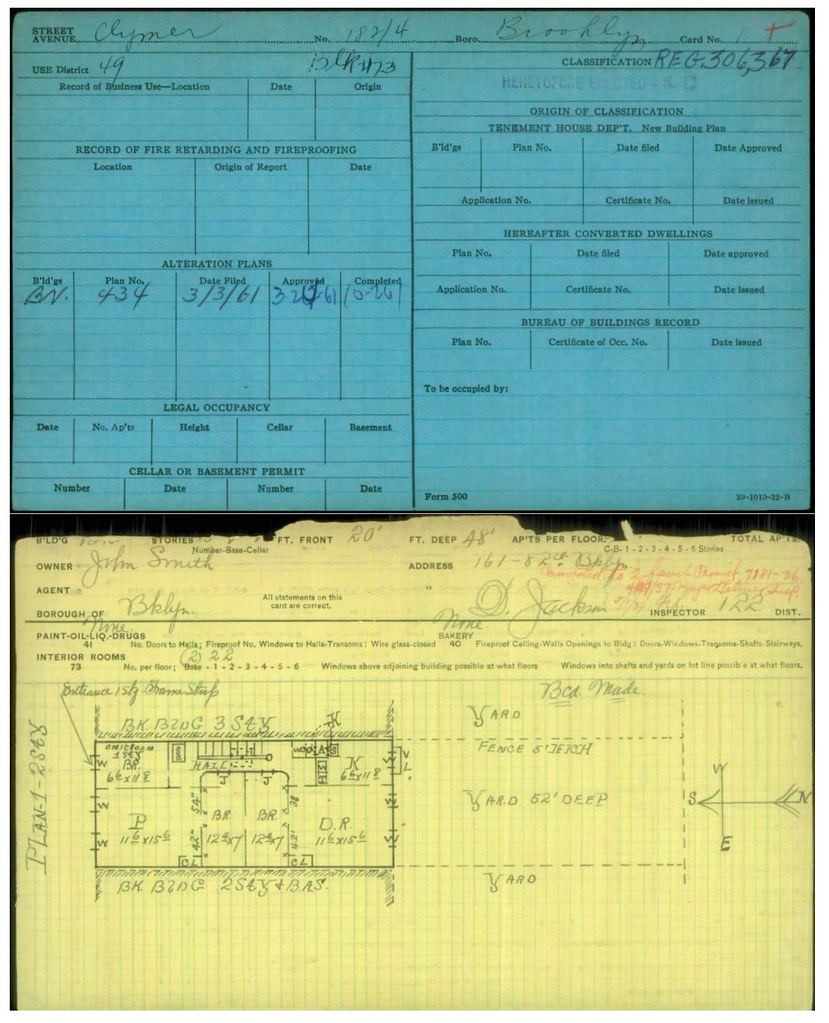 STREET
AVENUE Clymer No. 182/4 Boro. Brooklyn Card No.
USE District 49 Blk
CLASSIFICATION REG. 306,367
HERETOFORE ERECTED
Record of Business Use—Location Date Origin
ORIGIN OF CLASSIFICATION
TENEMENT HOUSE DEP'T. New Building Plan
B'ld'gs Plan No. Date filed Date Approved
RECORD OF FIRE RETARDING AND FIREPROOFING
Location Origin of Report Date
Application No. Certificate No. Date issued
HEREAFTER CONVERTED DWELLINGS
Plan No. Date filed Date approved
ALTERATION PLANS
B'ld'gs Plan No. Date Filed Approved Completed
BN. 434 3/3/61
Application No. Certificate No. Date issued
BUREAU OF BUILDINGS RECORD
Plan No. Certificate of Occ. No. Date issued
To be occupied by:
LEGAL OCCUPANCY
Date No. Ap'ts Height Cellar Basement
CELLAR OR BASEMENT PERMIT
Number Date Number Date
Form 500 20-1019-32-B
B'LD'G STORIES FT. FRONT 20' FT. DEEP 48' AP'TS PER FLOOR: TOTAL AP'TS
Number-Base-Cellar C-B-1-2-3-4-5-6 Stories
OWNER John Smith ADDRESS 161-82 St Bklyn.
AGENT "
All statements on this
card are correct.
BOROUGH OF Bklyn. D. Jackson INSPECTOR 122 DIST.
None None
PAINT-OIL-LIQ.-DRUGS BAKERY
41 No. Doors to Halls; Fireproof No, Windows to Halls-Transoms: Wire glass-closed 40 Fireproof Ceiling-Walls Openings to Bldg: Doors-Windows-Transoms-Shafts-Stairways.
INTERIOR ROOMS 2 22
73 No. per floor; Base-1-2-3-4-5-6 Windows above adjoining building possible at what floors Windows into shafts and yards on lot line possible at what floors.
Entrance 1 sty Frame Stoop
Bcd. Made.
YARD
BK. BLDG 3 STY
K
FENCE 5' HIGH
PLAN-1-2STY
BR. HALL K
6⁶x11⁸ 6⁶x11⁸
YARD 52' DEEP
W
S N
E
P BR. BR. D.R.
11⁶x15⁶ 12⁴x7 12⁴x7 11⁶x15⁶
CL CL
YARD
BK. BLDG 2 STY & BAS.